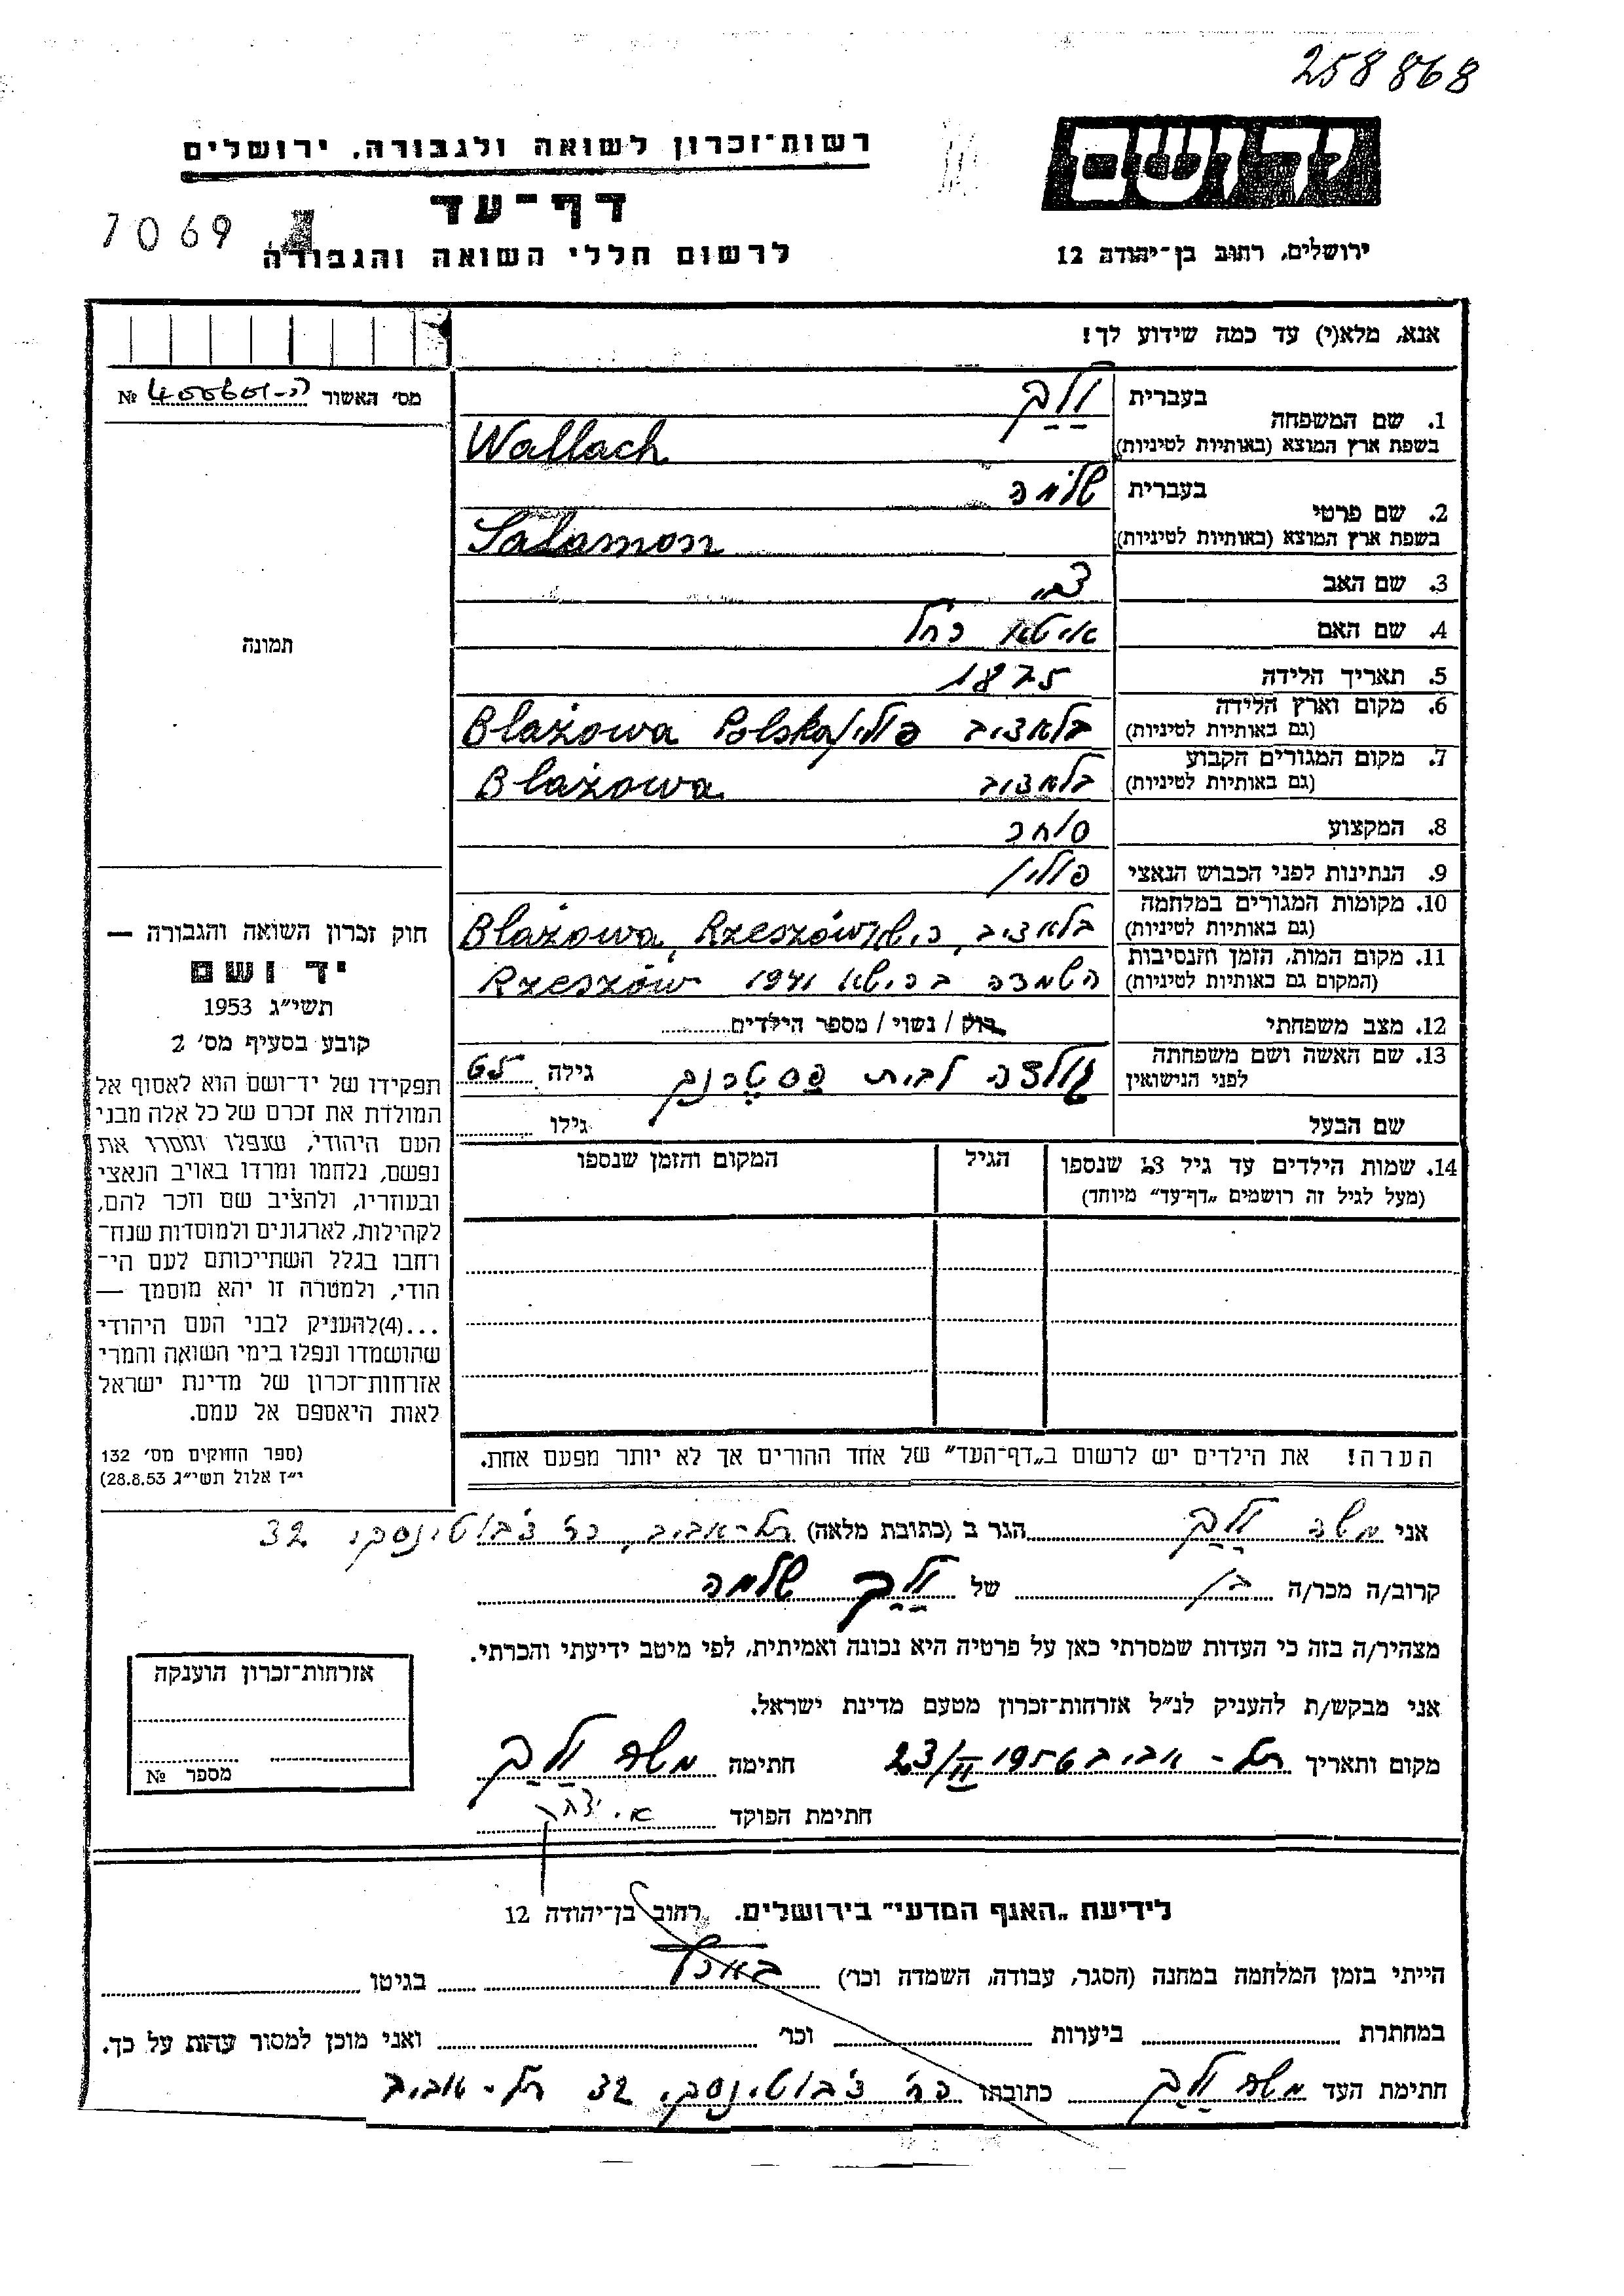 258868
יד ושם
רשות־זכרון לשואה ולגבורה, ירושלים
דף־עד
7069
לרשום חללי השואה והגבורה
ירושלים, רחוב בן־יהודה 12
אנא, מלא(י) עד כמה שידוע לך!
מס' האשור №
1. שם המשפחה
בעברית ולך
בשפת ארץ המוצא (באותיות לטיניות) Wallach
2. שם פרטי
בעברית שלמה
בשפת ארץ המוצא (באותיות לטיניות) Salamon
3. שם האב צבי
4. שם האם איטא רחל
5. תאריך הלידה 1875
6. מקום וארץ הלידה
(גם באותיות לטיניות) בלאציב פולין Blażowa Polska
7. מקום המגורים הקבוע
(גם באותיות לטיניות) בלאציב Blażowa
8. המקצוע סוחר
9. הנתינות לפני הכבוש הנאצי פולין
10. מקומות המגורים במלחמה
(גם באותיות לטיניות) בלאציב, רישא Blażowa, Rzeszów
11. מקום המות, הזמן והנסיבות
(המקום גם באותיות לטיניות) השמדה ברישא 1941 Rzeszów
12. מצב משפחתי רוק / נשוי / מספר הילדים
13. שם האשה ושם משפחתה
לפני הנישואין גולדה לבית פסטרנק גילה 65
שם הבעל גילו
14. שמות הילדים עד גיל 18 שנספו הגיל המקום והזמן שנספו
(מעל לגיל זה רושמים „דף־עד” מיוחד)
הערה! את הילדים יש לרשום ב„דף־העד” של אחד ההורים אך לא יותר מפעם אחת.
תמונה
חוק זכרון השואה והגבורה —
יד ושם
תשי״ג 1953
קובע בסעיף מס' 2
תפקידו של יד־ושם הוא לאסוף אל
המולדת את זכרם של כל אלה מבני
העם היהודי, שנפלו ומסרו את
נפשם, נלחמו ומרדו באויב הנאצי
ובעוזריו, ולהציב שם וזכר להם,
לקהילות, לארגונים ולמוסדות שנח־
רחבו בגלל השתייכותם לעם הי־
הודי, ולמטרה זו יהא מוסמך —
...(4)להעניק לבני העם היהודי
שהושמדו ונפלו בימי השואה והמרי
אזרחות־זכרון של מדינת ישראל
לאות היאספם אל עמם.
(ספר החוקים מס' 132
י״ז אלול תשי״ג 28.8.53)
אני משה ולך הגר ב (כתובת מלאה) תל־אביב, רח' ז'בוטינסקי 32
קרוב/ה מכר/ה בן של ולך שלמה
מצהיר/ה בזה כי העדות שמסרתי כאן על פרטיה היא נכונה ואמיתית, לפי מיטב ידיעתי והכרתי.
אני מבקש/ת להעניק לנ״ל אזרחות־זכרון מטעם מדינת ישראל.
מקום ותאריך תל־אביב 23/II 1956 חתימה משה ולך
חתימת הפוקד
אזרחות־זכרון הוענקה
מספר №
לידיעת „האגף המדעי” בירושלים. רחוב בן־יהודה 12
הייתי בזמן המלחמה במחנה (הסגר, עבודה, השמדה וכר') בארץ בגיטו
במחתרת ביערות וכר' ואני מוכן למסור עדות על כך.
חתימת העד משה ולך כתובתו רח' ז'בוטינסקי 32 תל־אביב